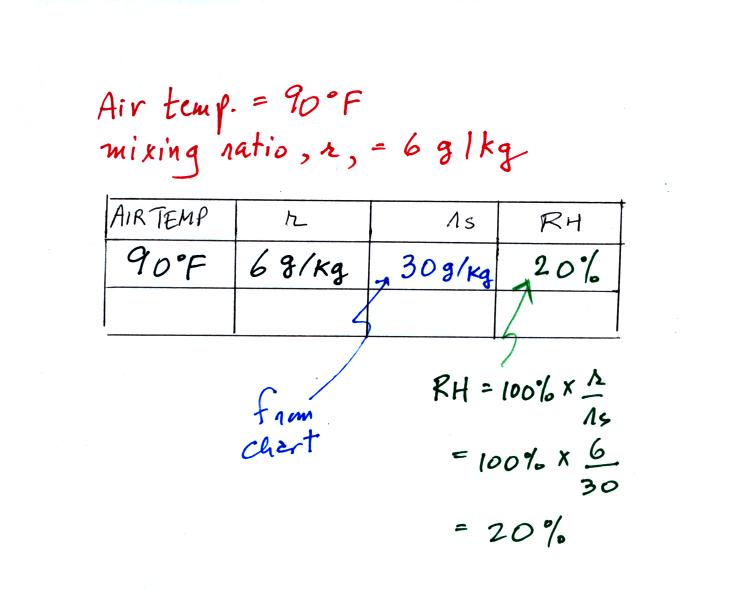 Air temp. = 90°F
mixing ratio, r, = 6 g/kg
AIR TEMP r rs RH
90°F 6 g/kg 30 g/kg 20%
from
chart
RH = 100% x r/rs
= 100% x 6/30
= 20%